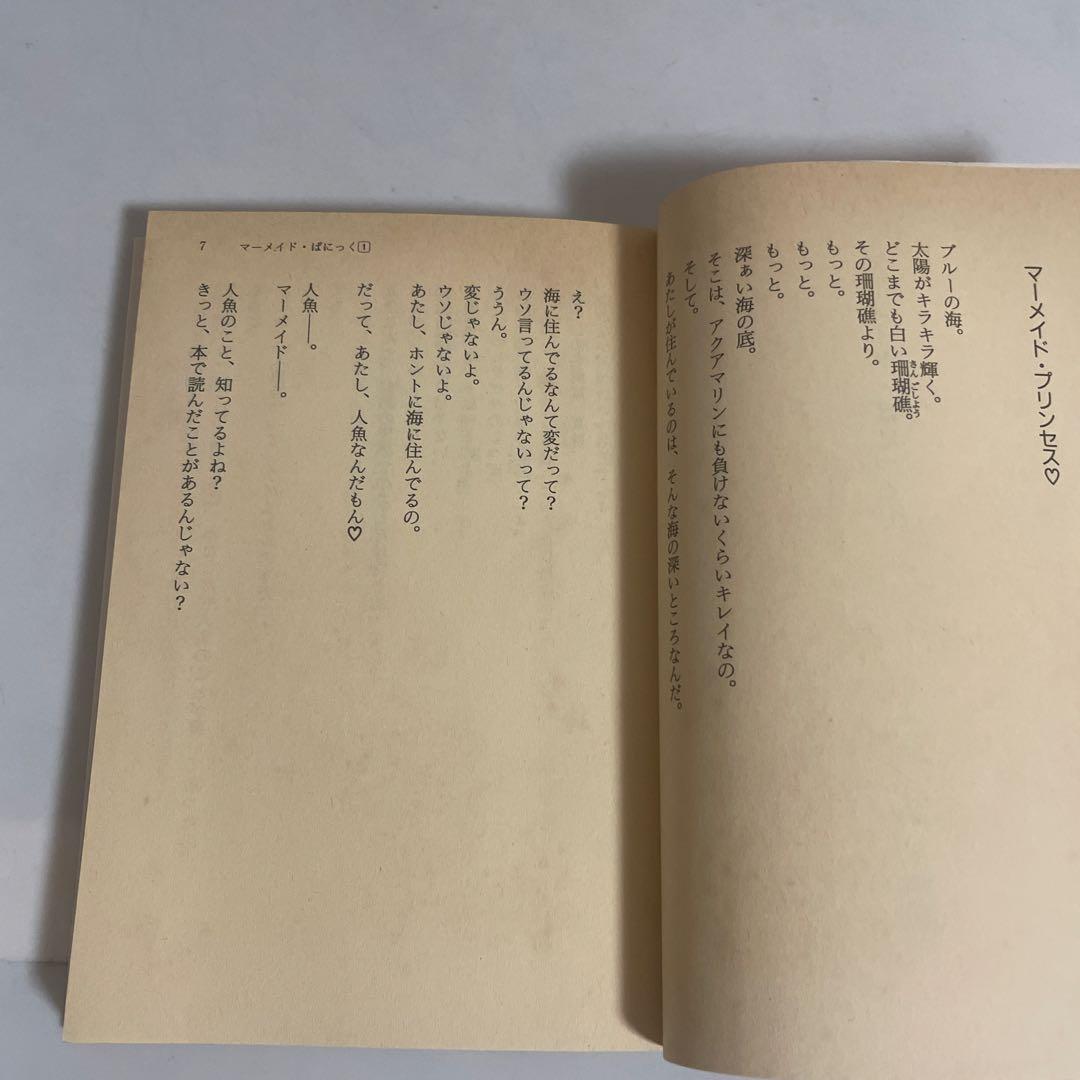 マーメイド・プリンセス♡
ブルーの海。
太陽がキラキラ輝く。
どこまでも白い珊瑚礁。
さんごしょう
その珊瑚礁より。
もっと。
もっと。
もっと。
深ぁい海の底。
そこは、アクアマリンにも負けないくらいキレイなの。
そして。
あたしが住んでいるのは、そんな海の深いところなんだ。
7 マーメイド・ぱにっく1
え?
海に住んでるなんて変だって?
ウソ言ってるんじゃないって?
ううん。
変じゃないよ。
ウソじゃないよ。
あたし、ホントに海に住んでるの。
だって、あたし、人魚なんだもん♡
人魚――。
マーメイド――。
人魚のこと、知ってるよね?
きっと、本で読んだことがあるんじゃない?